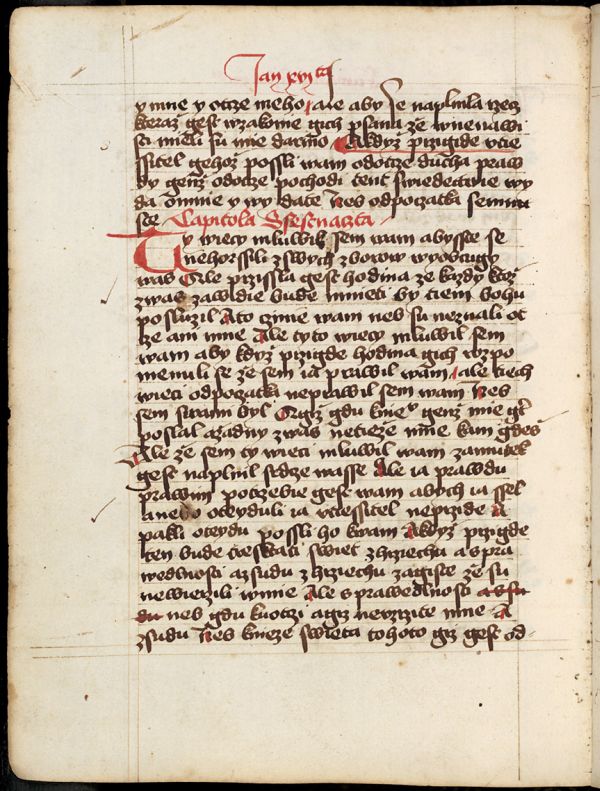 Jan xvi ta
y mne y otcze meho ale aby se naplnila rzecz
kteraz gest w zakonie gich psana ze w nenawi
sti mieli su mie darmo A kdyz przigide vtie
ssitel gehoz possli wam od otcze ducha praw
dy genz od otcze pochodi tent swiedectwie wy
da o mnie y wy date nes od poczatka se mnu
ste Capitola Ssestnaczta
Ty wiecy mluwil sem wam abysste se
nehorssili z swych zborow wyobczugy
was Ale przissla gest hodina ze kazdy ktoz
zwas zawraždie bude mnieti by tiem bohu
posluzil A to czinie wam neb su neznali ot
cze ani mne Ale tyto wiecy mluwil sem
wam aby kdyz przigde hodina gich rozpo
menuli se ze sem ia prawil wam ale tiech
wieci od poczatka neprawil sem wam Neb
sem s wami byl A giz gdu k nie genz mie gt
poslal a zadny z was netieze mne kam gdes
Ale ze sem ty wieci mluwil wam zamutek
gest naplnil srdze wasse Ale ia prawdu
prawim potrzebie gest wam abych ia ssel
a nebo oteydu li ia vtiessitel neprzide A
pakli oteydu possli ho k wam A kdyz przigde
ten bude treskati swiet z hrziechu a s pra
wedlnosti a z sudu z hrziechu zagiste ze su
newierzili w mie Ale s prawedlnosti a s su
du neb gdu k otczi a giz neuzrzite mne A
z sudu Neb knieze swieta tohoto giz gest od-